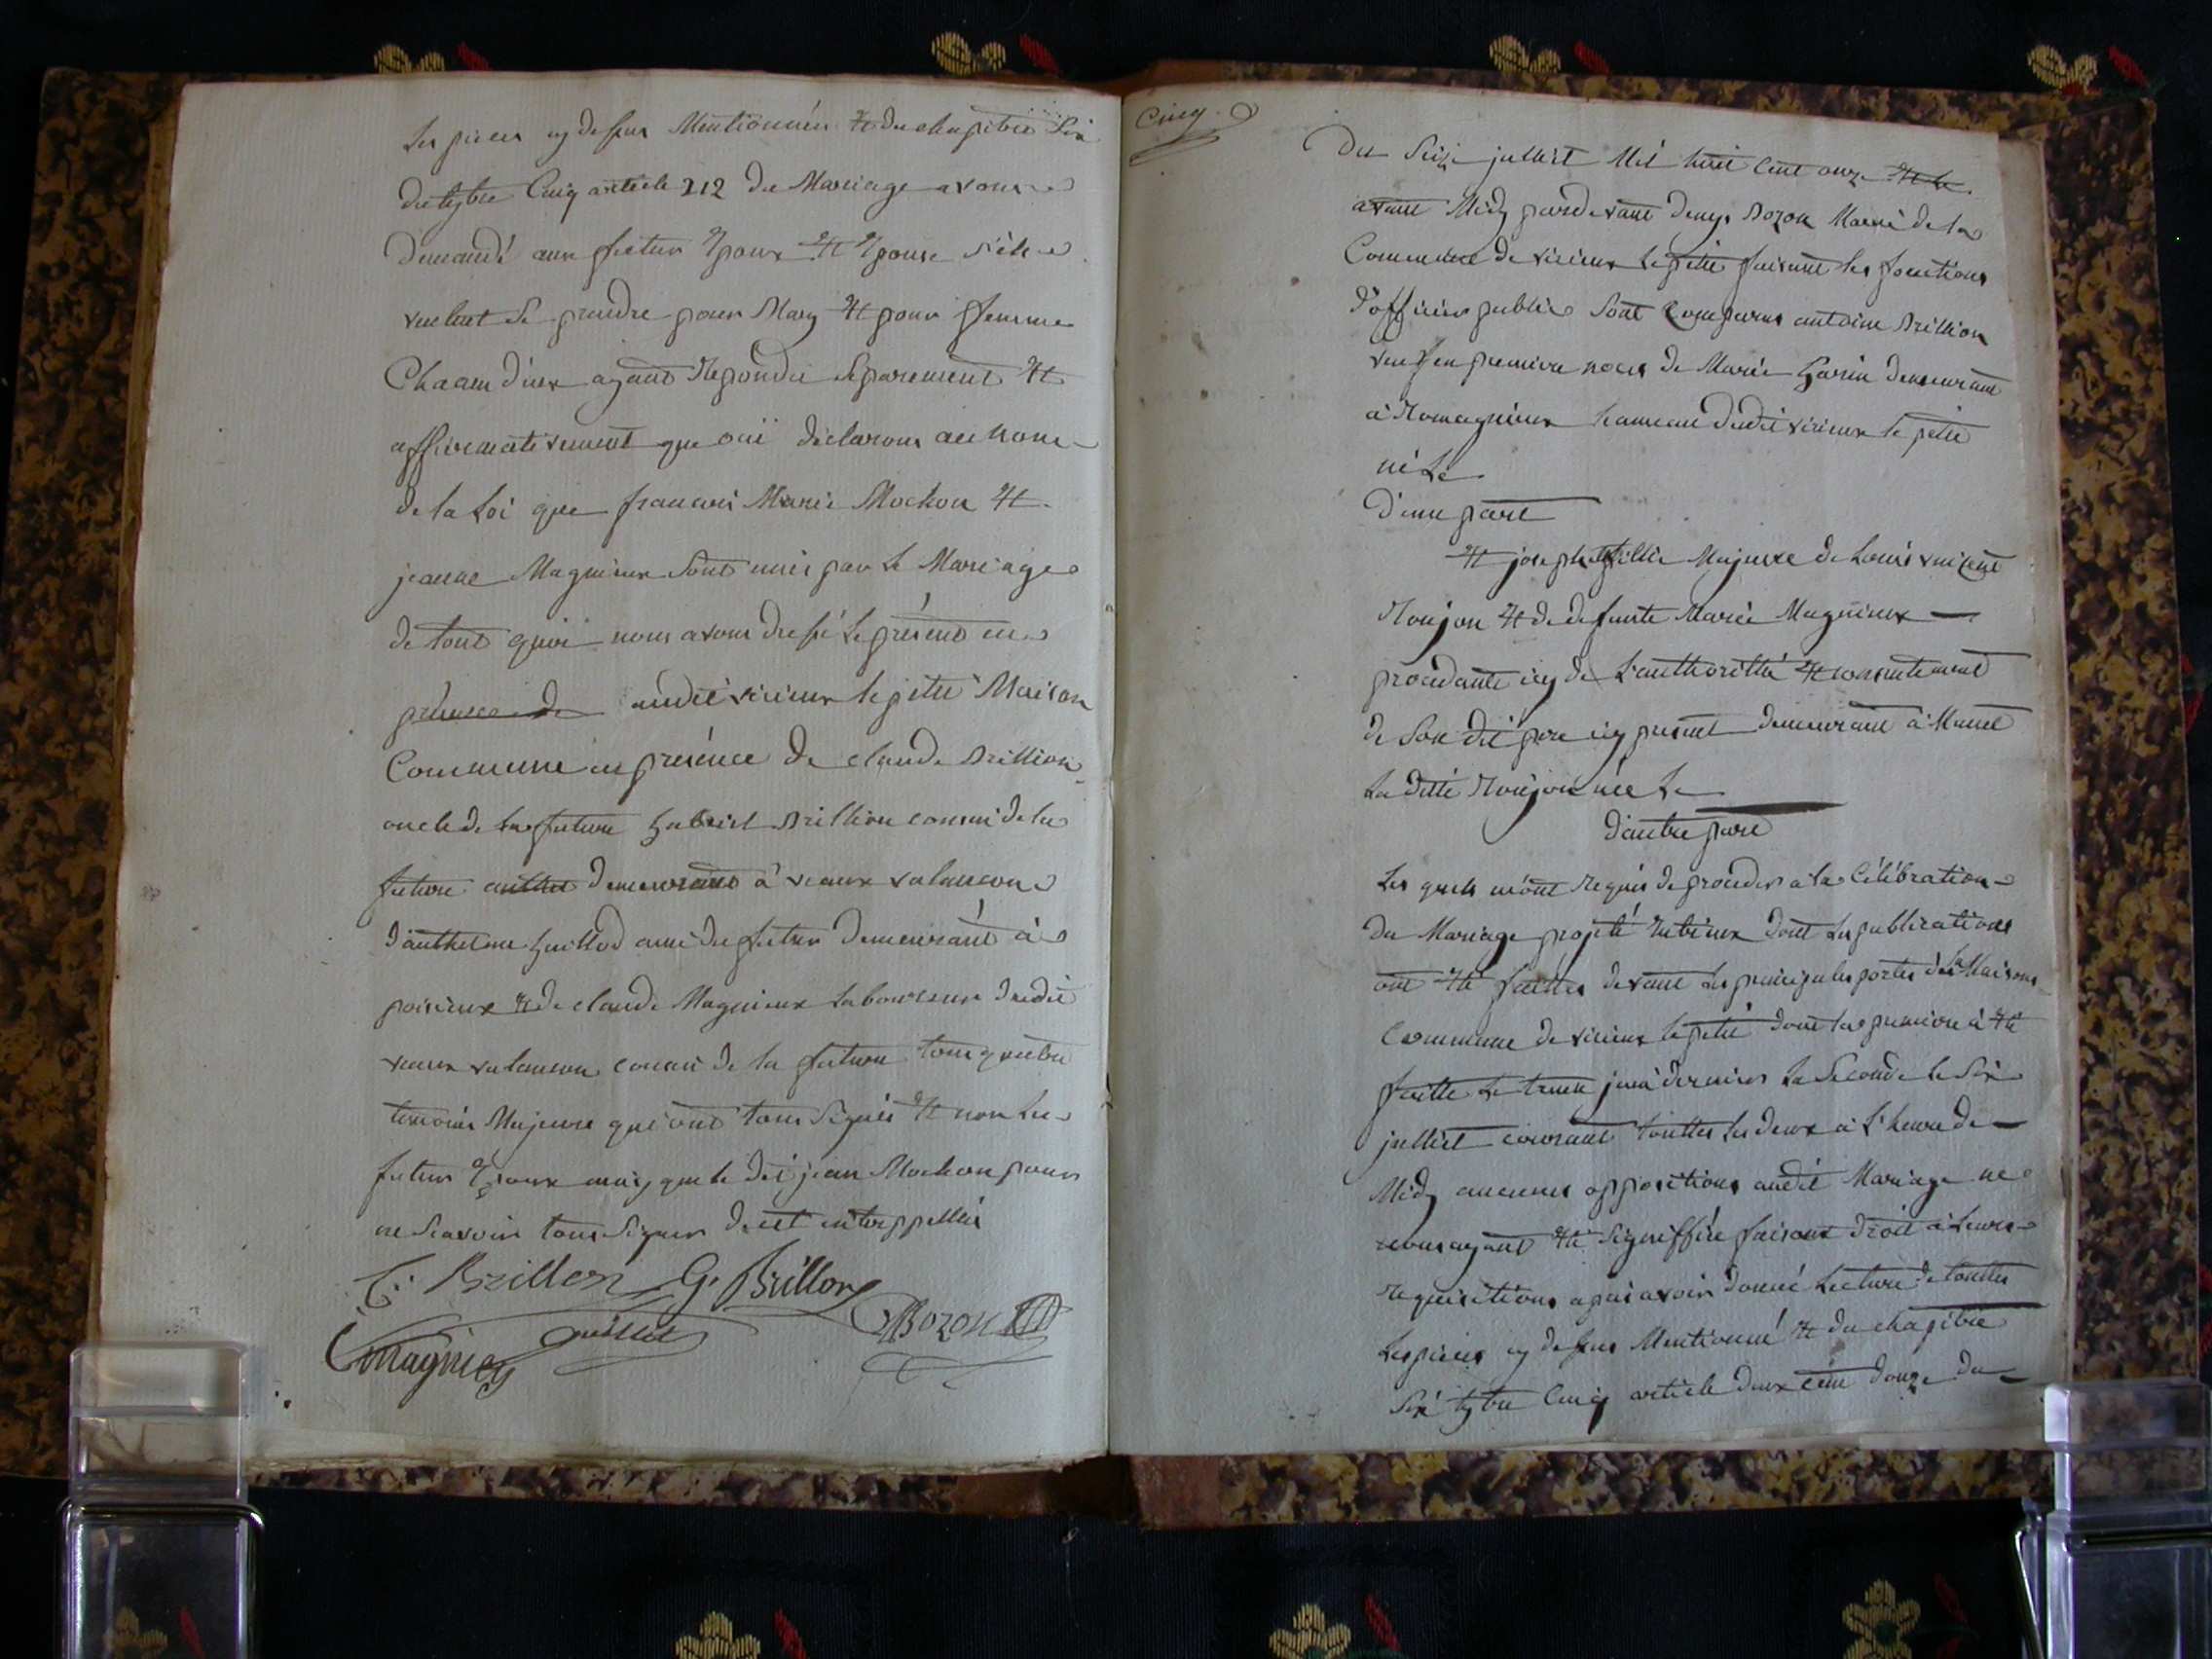 Les pieces cy dessus Mentionnées Et du chapitre Six
du tytre Cinq article 212 du Mariage avons
demandé aux futur Epoux Et Epouse s'ils
veulent se prendre pour Mary Et pour femme
Chacun d'eux ayant Repondu Separement Et
affirmativement que oui déclarons au nom
de la Loi que francois Marie Mochon Et
jeanne Magnieux Sont unis par le Mariage
de tout quoi nous avons dressé le présent en
presence de audit virieux le petit Maison
Commune en présence de claude Brillion
oncle de la future Gabriel Brillion cousin de la
future demeurant à vieux valancon
d'anthelme Guillod ami du futur demeurant à
poisieux Et de claude Magnieux Laboureur dudit
vieux valancon cousin de la future tous quatre
temoins Majeurs qui ont tous Signés Et non les
futurs Epoux ny que le dit jean Mochon pour
ne Scavoir tous Signer de cet interppellés
C. Brillon G. Brillon
Bozon
Guillot
C Magnien
Cinq.
Du Seize julliet Mil huit Cent onze Et le
avant Midy pardevant denys Bozon Maire de la
Commune de virieux le petit faisant les fonctions
d'officier public Sont Comparus antoine Brillion
veuf en premiere noces de Marie Garin demeurant
à Romagnieux hameau dudit virieux le petit
né Le
D'une part
Et josephte fillie Majeure de Louis vincent
Roujon Et de defunte Marie Magnieux
procedante icy de L'authorithé Et consentement
de Son dit pere icy present demeurant à Munet
La ditte Roujon née Le
d'autre part
Les quels m'ont Requis de proceder à la Célébration
du Mariage projeté Entreux dont les publications
ont Eté faittes devant les principales portes de la Maison
Commune de virieux le petit dont la premiere à Eté
faitte le trente juin dernier La Seconde le Six
julliet courant touttes les deux à L'heure de
Midy aucunes oppositions audit Mariage ne
nous ayant Eté Signiffiée faisant droit à Leurs
Requisitions apres avoir donné Lecture de touttes
Les pieces cy dessus Mentionné Et du chapitre
Six tytre Cinq article deux cent douze du